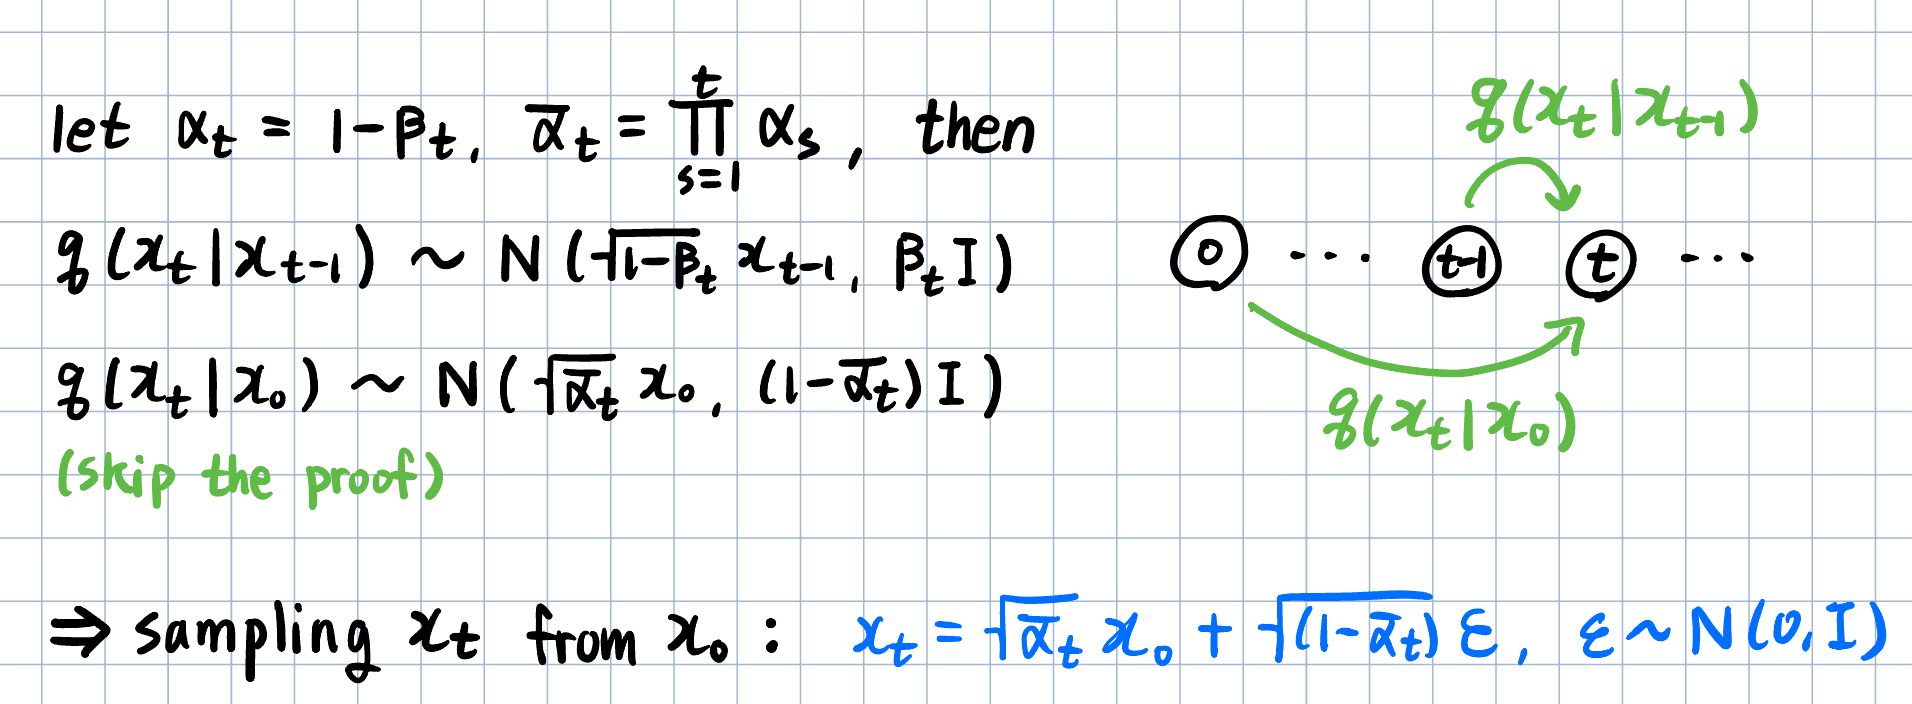 let αₜ = 1-βₜ, ᾱₜ = ∏ₛ₌₁ᵗ αₛ, then
q(xₜ|xₜ₋₁) ~ N(√(1-βₜ) xₜ₋₁, βₜI)
q(xₜ|x₀) ~ N(√ᾱₜ x₀, (1-ᾱₜ)I)
(skip the proof)
q(xₜ|xₜ₋₁)
0 ... t-1 t ...
q(xₜ|x₀)
⇒ sampling xₜ from x₀ : xₜ = √ᾱₜ x₀ + √(1-ᾱₜ) ε, ε ~ N(0, I)